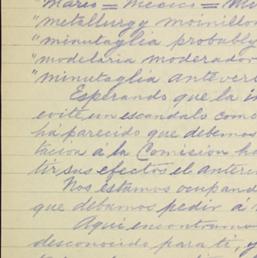 "Mares = Mexico = Mu
"metallurgy moinillon
"minutaglia probably
"modelaria moderador
"minutaglia antever
Esperando que la in
evite un escandalo como
ha parecido que debemos
tacion á la Comision ha
tir sus efectos el anteri
Nos estamos ocupand
que debamos pedir á
Aqui encontramo
desconocido para tí, y